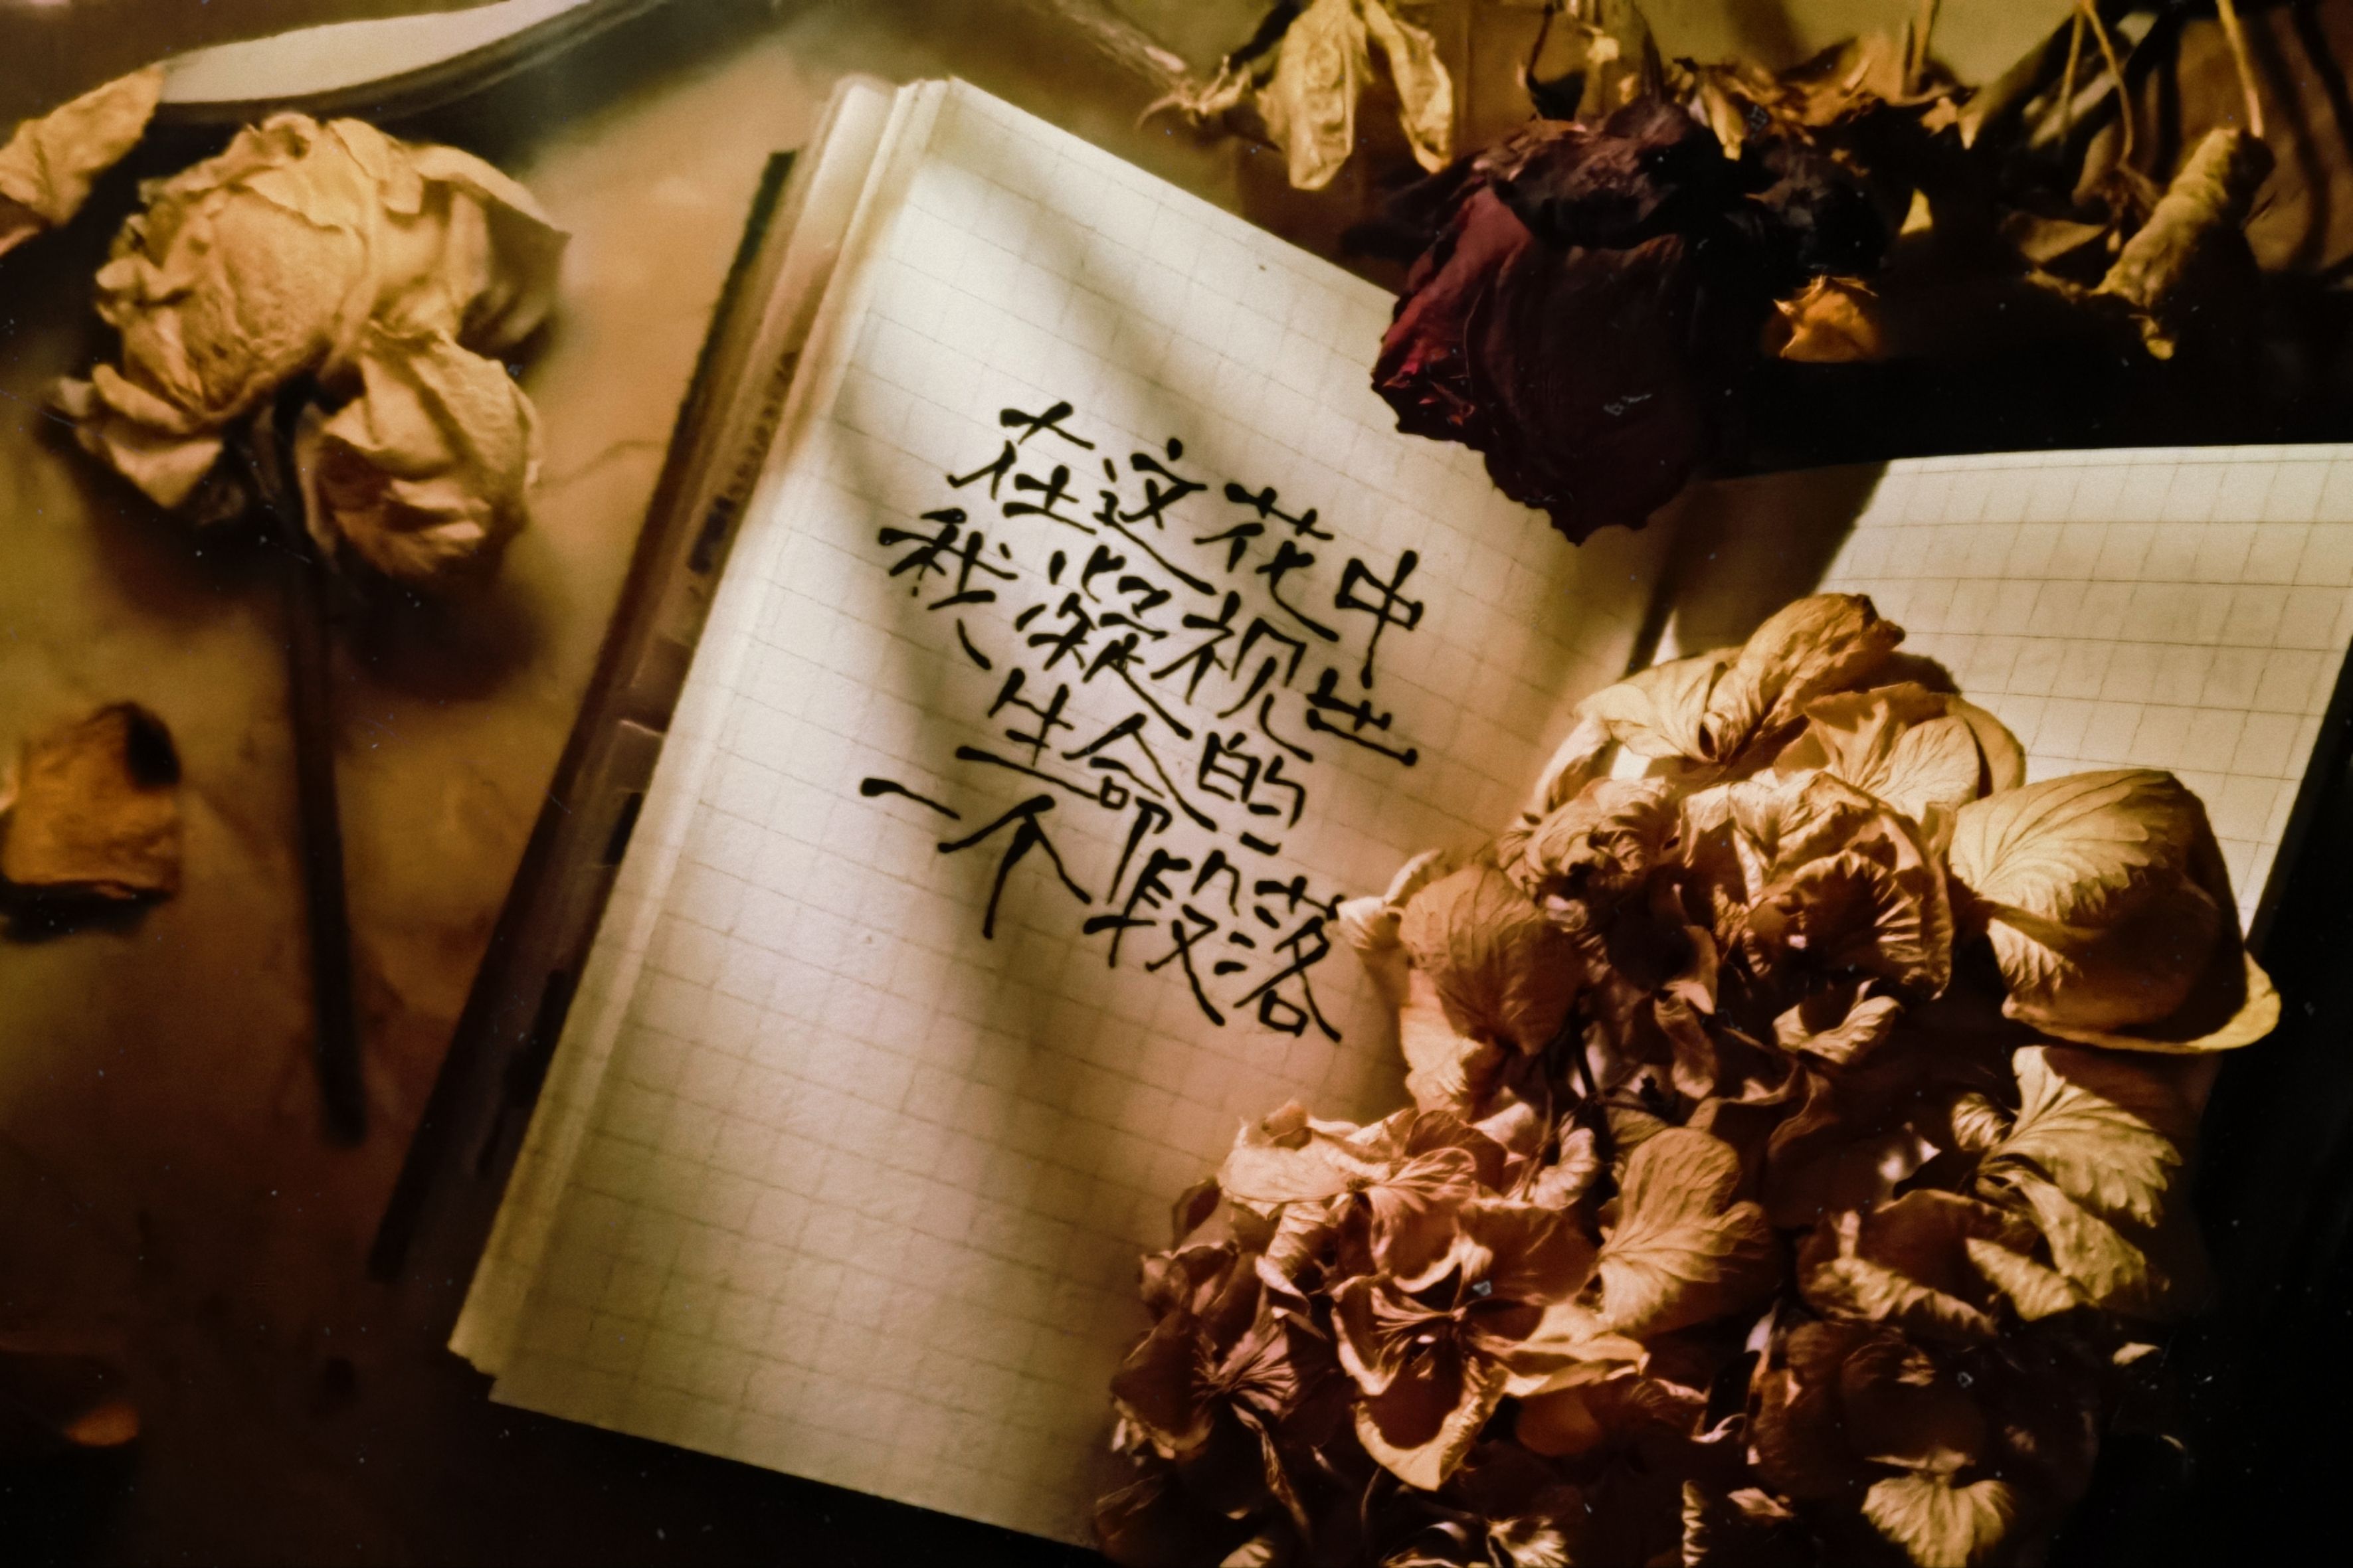 在这花中
我凝视出
生命的
一个段落